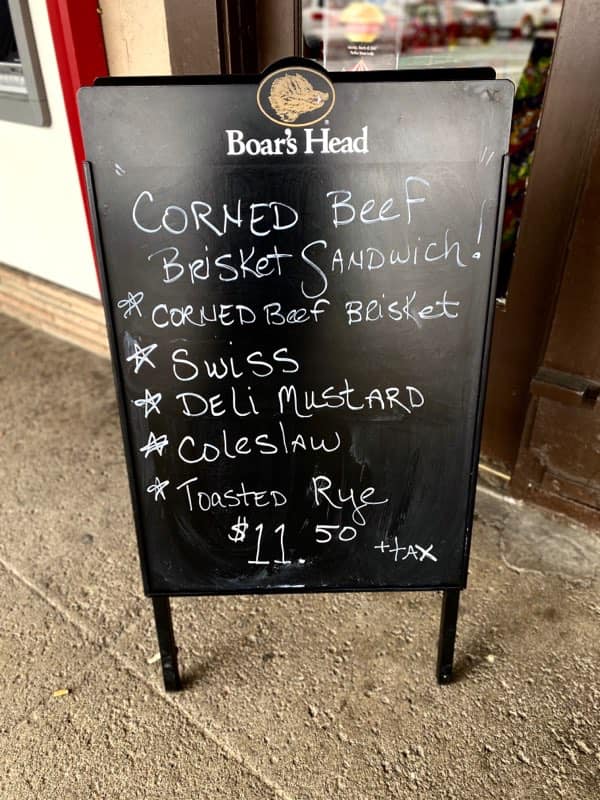 Boar's Head
"CORNED Beef
BRISKet SANDWich!"
* CORNED Beef BRISKet
* SWISS
* DELi MUStARD
* ColeslAW
* TOASTED Rye
$11.50 +tAX